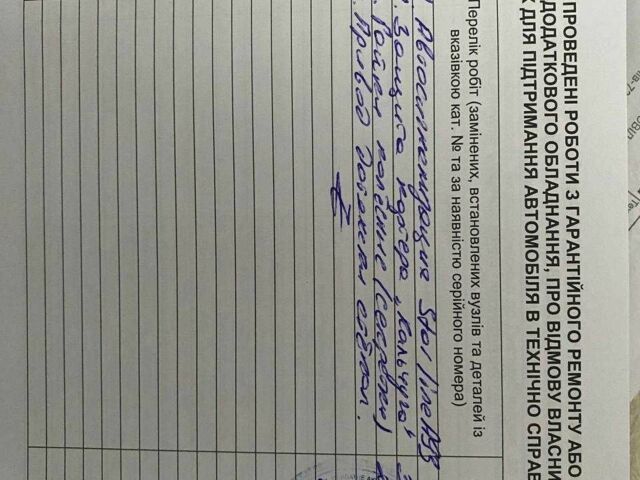 ПРОВЕДЕНІ РОБОТИ З ГАРАНТІЙНОГО РЕМОНТУ АБО
ДОДАТКОВОГО ОБЛАДНАННЯ, ПРО ВІДМОВУ ВЛАСНИ
Х ДЛЯ ПІДТРИМАННЯ АВТОМОБІЛЯ В ТЕХНІЧНО СПРАВ
Перелік робіт (замінених, встановлених вузлів та деталей із
вказівкою кат. № та за наявністю серійного номера)
Автосигнализация Star line
Защита картера "Кольчуга"
(серебро)
Привод